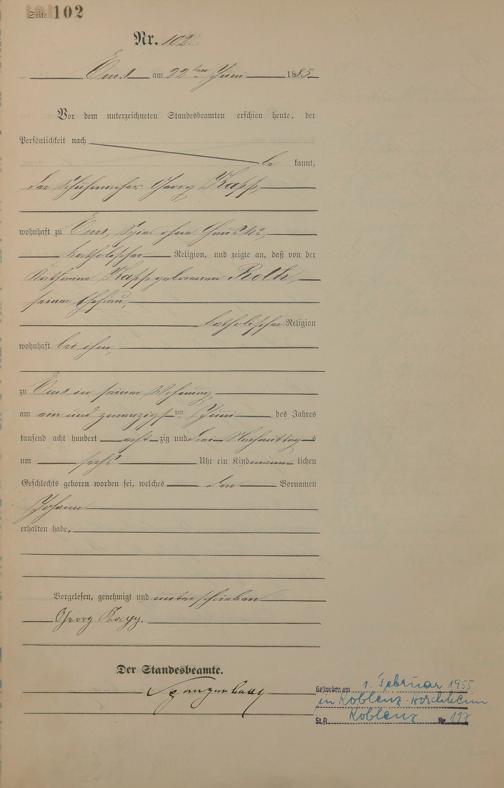 Seite 102
Nr. 102.
Ems am 22ten Juni 1885
Vor dem unterzeichneten Standesbeamten erschien heute, der
Persönlichkeit nach
be kannt,
der Schuhmacher Georg Kapp
wohnhaft zu Ems,
katholischer Religion, und zeigte an, daß von der
Kapp geborenen Roth
seiner Ehefrau,
katholischer Religion
wohnhaft bei ihm,
zu Ems in seiner Wohnung
am ein und zwanzigsten Juni des Jahres
tausend acht hundert acht zig und Nachmittags
um sechs Uhr ein Kind männ lichen
Geschlechts geboren worden sei, welches den Vornamen
Johann
erhalten habe,
Vorgelesen, genehmigt und unterschrieben
Georg Kapp
Der Standesbeamte.
Gestorben am 1. Februar 1955
in Koblenz-Horchheim
St.A. Koblenz Nr. 117